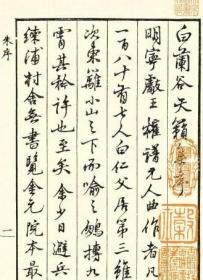 白蘭谷天籟集序
明寧獻王權譜元人曲作者
一百八十有七人白仁父居第三雖
次東籬小山之下而喻之鵬摶九
霄其矜許也至矣余少日避兵
練浦村舍無書覽金元院本最
朱序
一